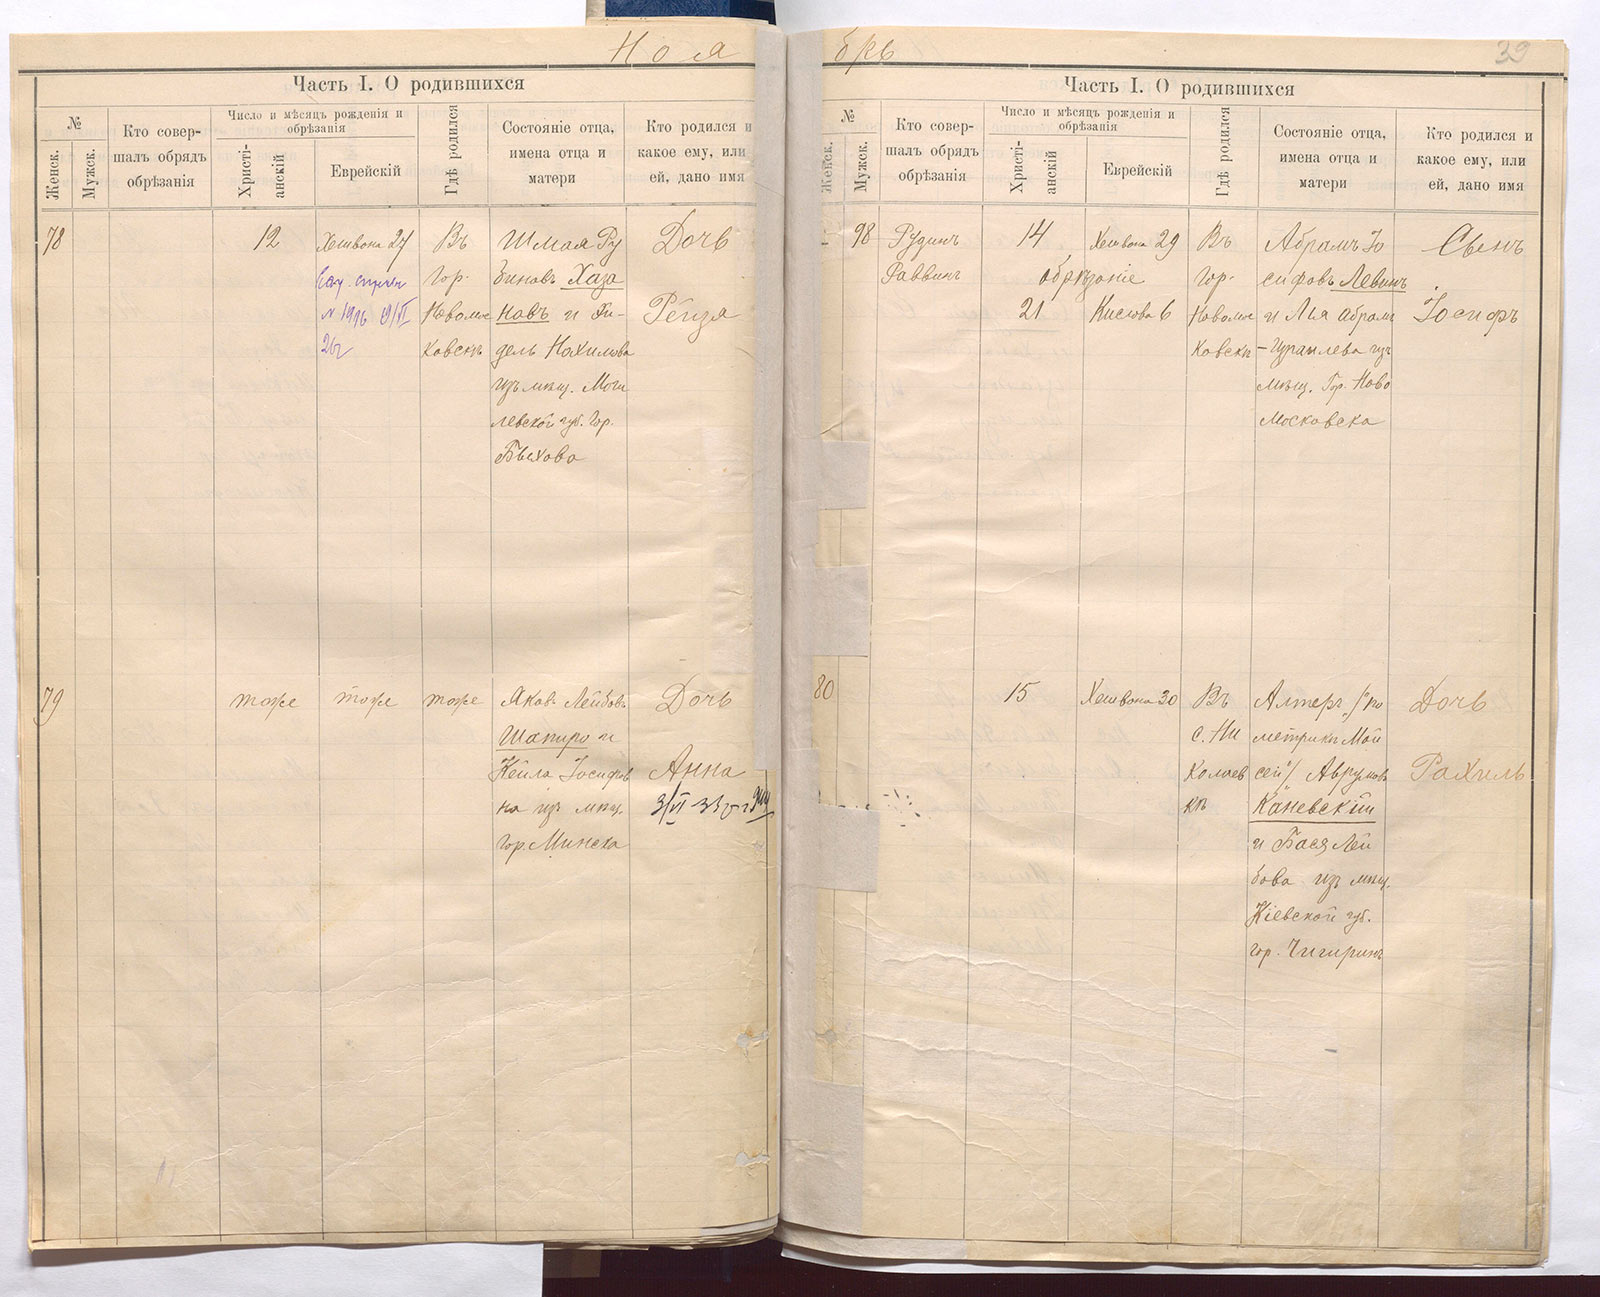 Ноя
Часть I. О родившихся
№
Женск.
Мужск.
Кто совер-
шалъ обрядъ
обрѣзанія
Число и мѣсяцъ рожденія и
обрѣзанія
Христі-
анскій
Еврейскій
Гдѣ родился
Состояніе отца,
имена отца и
матери
Кто родился и
какое ему, или
ей, дано имя
78
12
Хешвона 27
Въ
гор.
Новомос
ковскъ
Шмая Ру
биновъ Хаза
новъ и Ги-
дель Нохимова
изъ мѣщ. Моги
левской губ. гор.
Быхова
Дочь
Рейзя
79
тоже
тоже
тоже
Яковъ Лейбовъ
Шапиро и
Кейла Іосифов
на изъ мѣщ.
гор. Минска
Дочь
Анна
бря
39
Часть I. О родившихся
№
Женск.
Мужск.
Кто совер-
шалъ обрядъ
обрѣзанія
Число и мѣсяцъ рожденія и
обрѣзанія
Христі-
анскій
Еврейскій
Гдѣ родился
Состояніе отца,
имена отца и
матери
Кто родился и
какое ему, или
ей, дано имя
98
Рудинъ
Раввинъ
14
Хешвона 29
обрѣзаніе
21
Кислова 6
Въ
гор.
Новомос
ковскъ
Абрамъ Іо
сифовъ Левинъ
и Лія Абрам
-Израилева изъ
мѣщ. Гор. Ново
московска
Сынъ
Іосифъ
80
15
Хешвона 30
Въ
с. Ни
колаев
кѣ
Алтеръ /по
метрикѣ Мои
сей/ Аврумовъ
Каневскій
и Бася Лей
бова изъ мѣщ.
Кіевской губ.
гор. Чигиринъ
Дочь
Рахиль